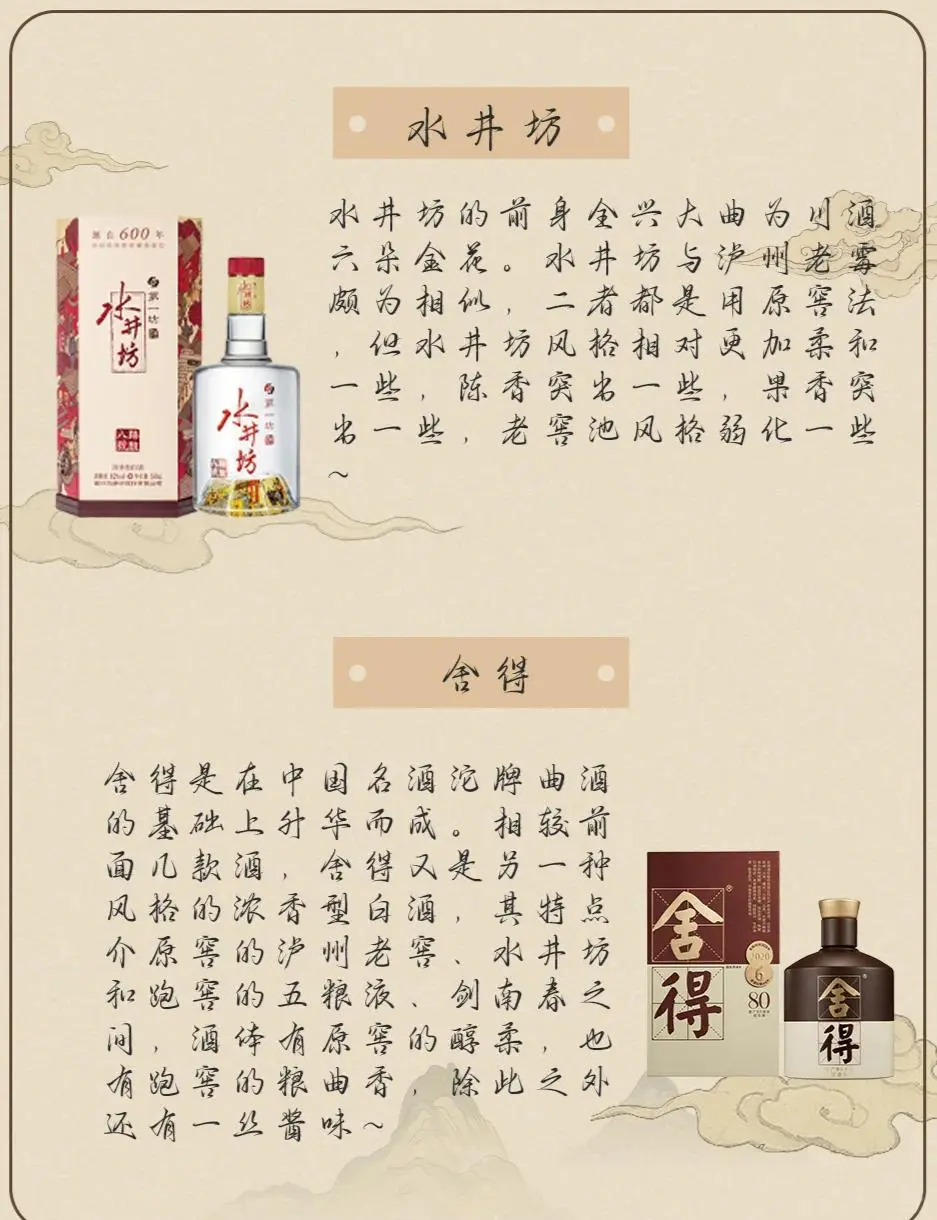 水井坊
水井坊的前身全兴大曲为川酒
六朵金花。水井坊与泸州老霉
颇为相似，二者都是用原窖法
，但水井坊风格相对更加柔和
一些，陈香突出一些，果香突
出一些，老窖池风格弱化一些
~
源自600年
第一坊
水井坊
第一坊
水井坊
舍得
舍得是在中国名酒沱牌曲酒
的基础上升华而成。相较前
面几款酒，舍得又是另一种
风格的浓香型白酒，其特点
介原窖的泸州老窖、水井坊
和跑窖的五粮液、剑南春之
间，酒体有原窖的醇柔，也
有跑窖的粮曲香，除此之外
还有一丝酱味~
舍得
2020
6
80
舍得